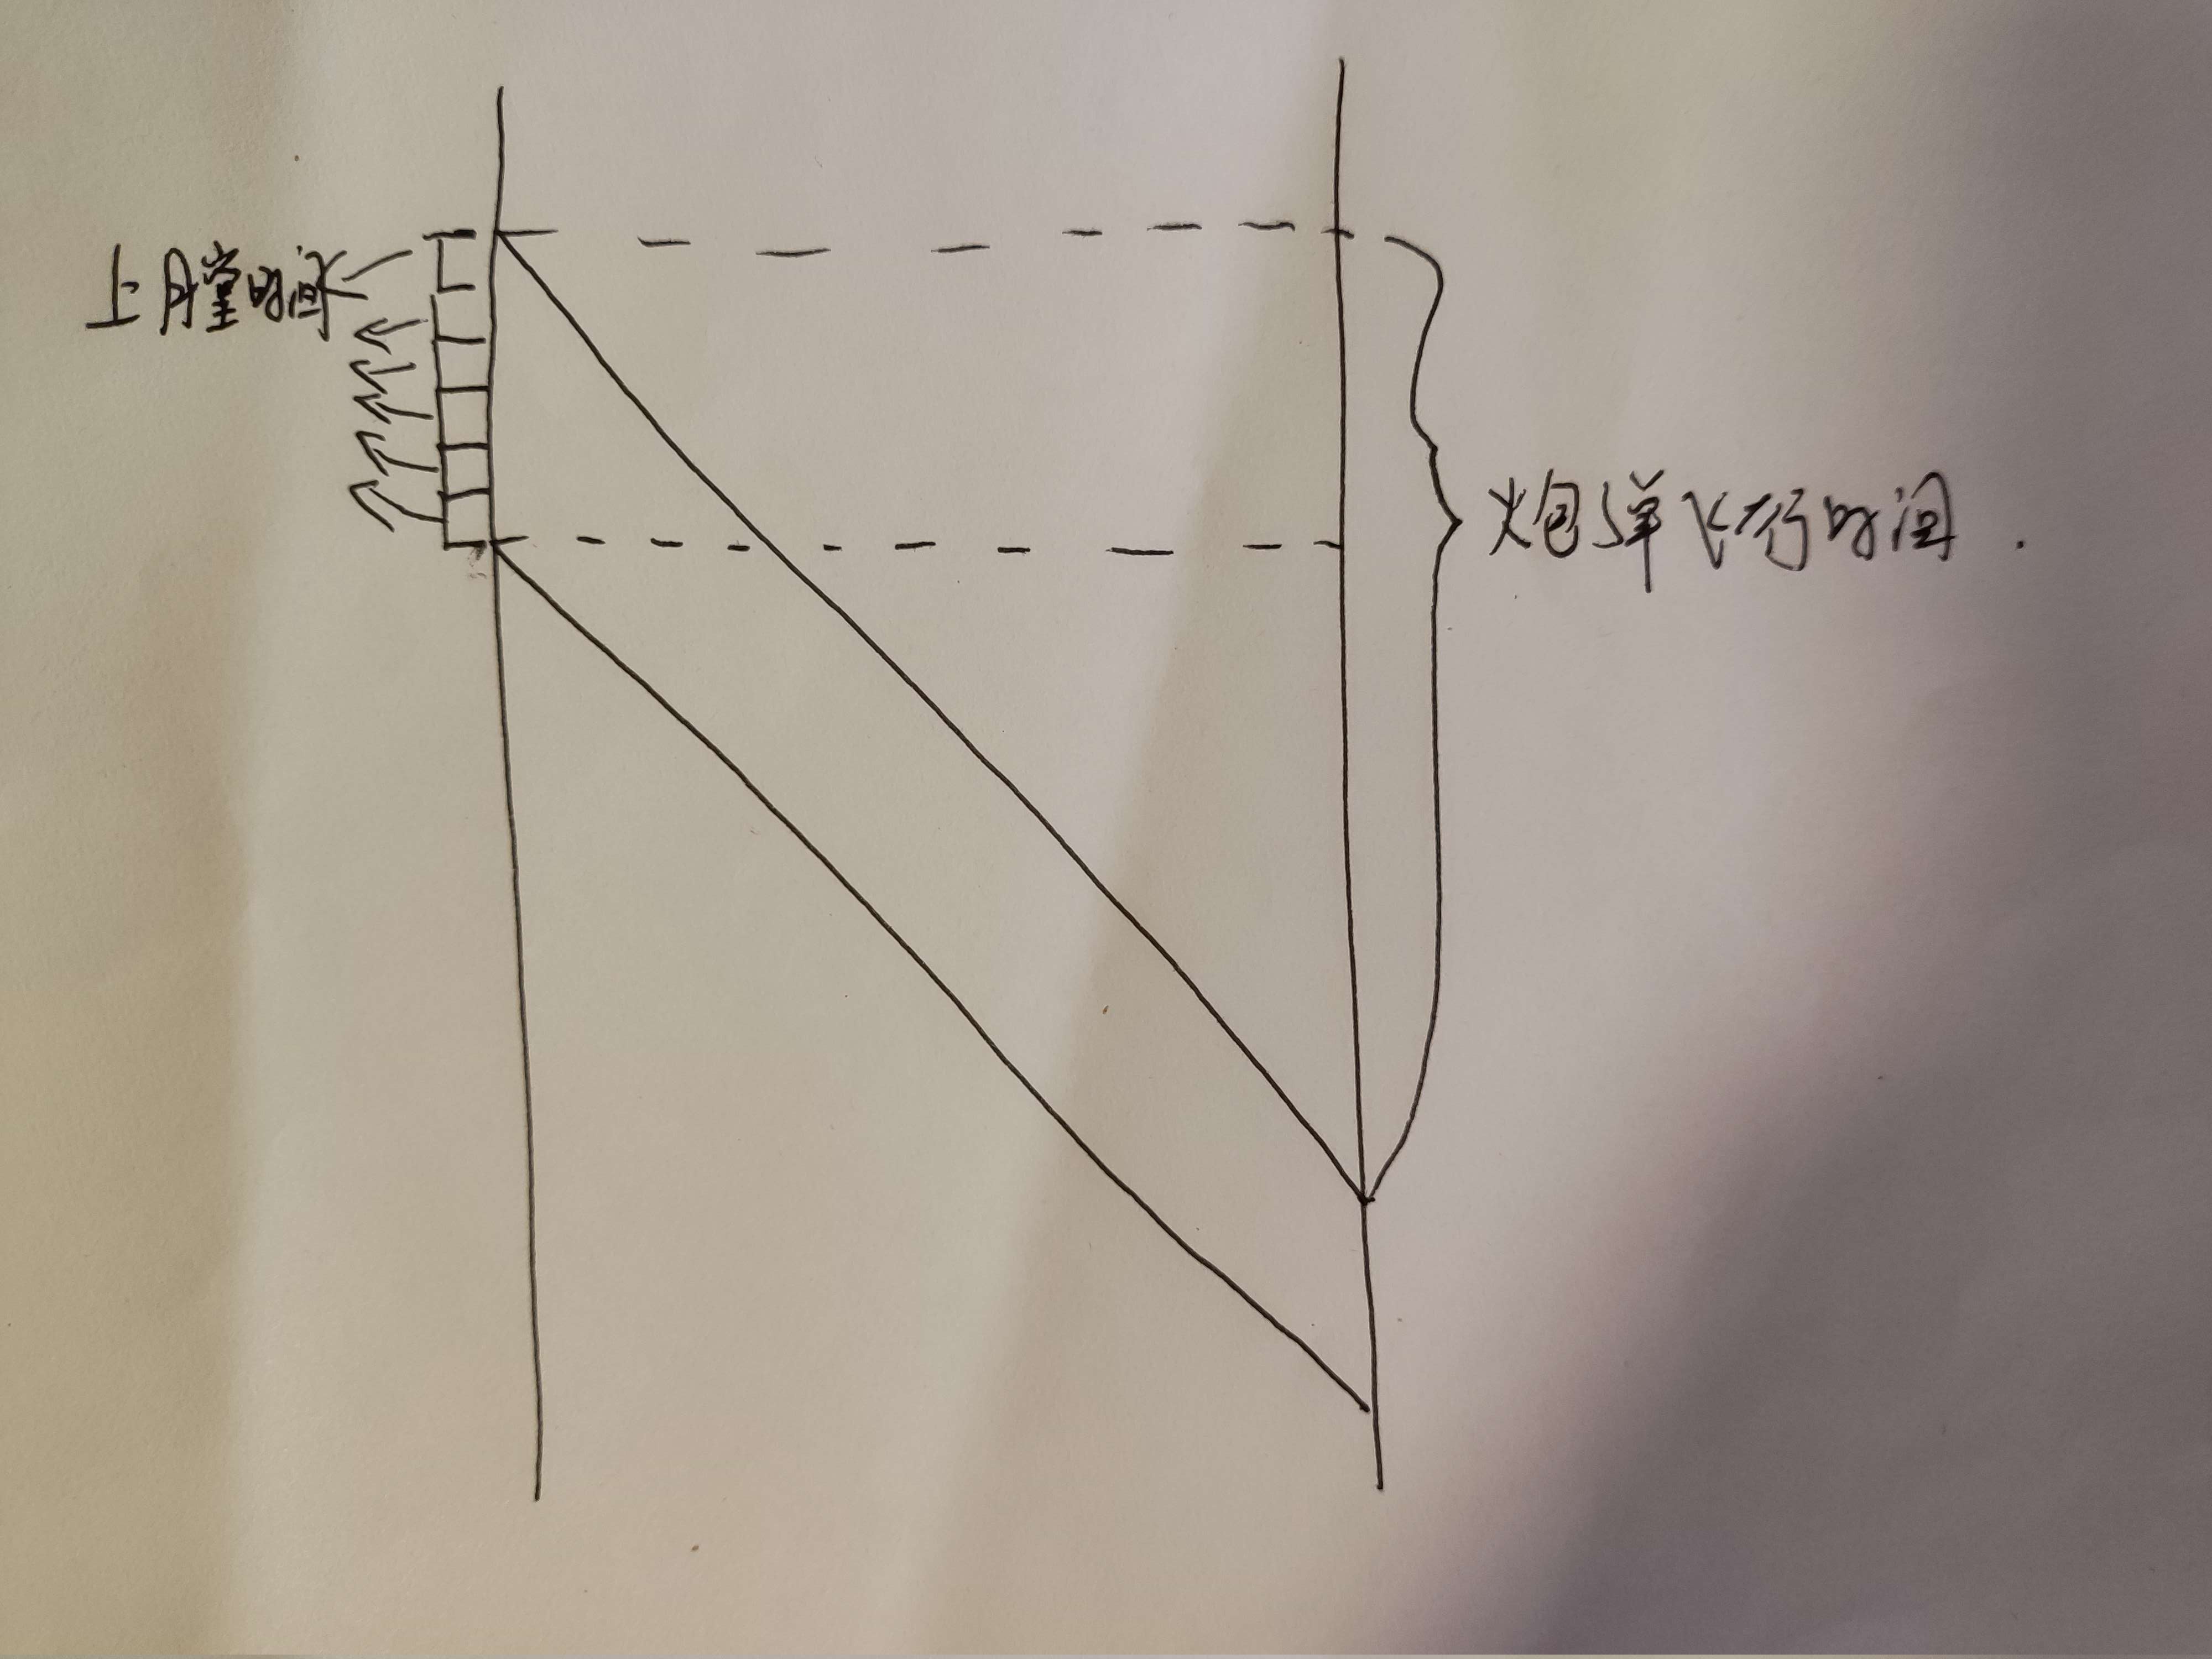 上膛时间
炮弹飞行时间.